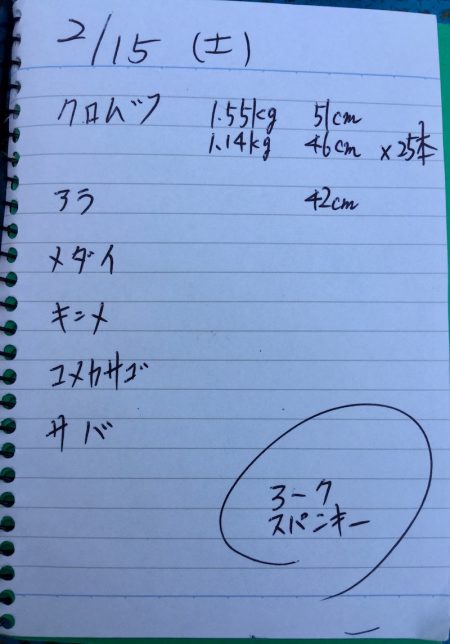 2/15 (土)
クロムツ 1.55kg 51cm
1.14kg 46cm ×25本
アラ 42cm
メダイ
キンメ
ユメカサゴ
サバ
ヨーク
スパンキー